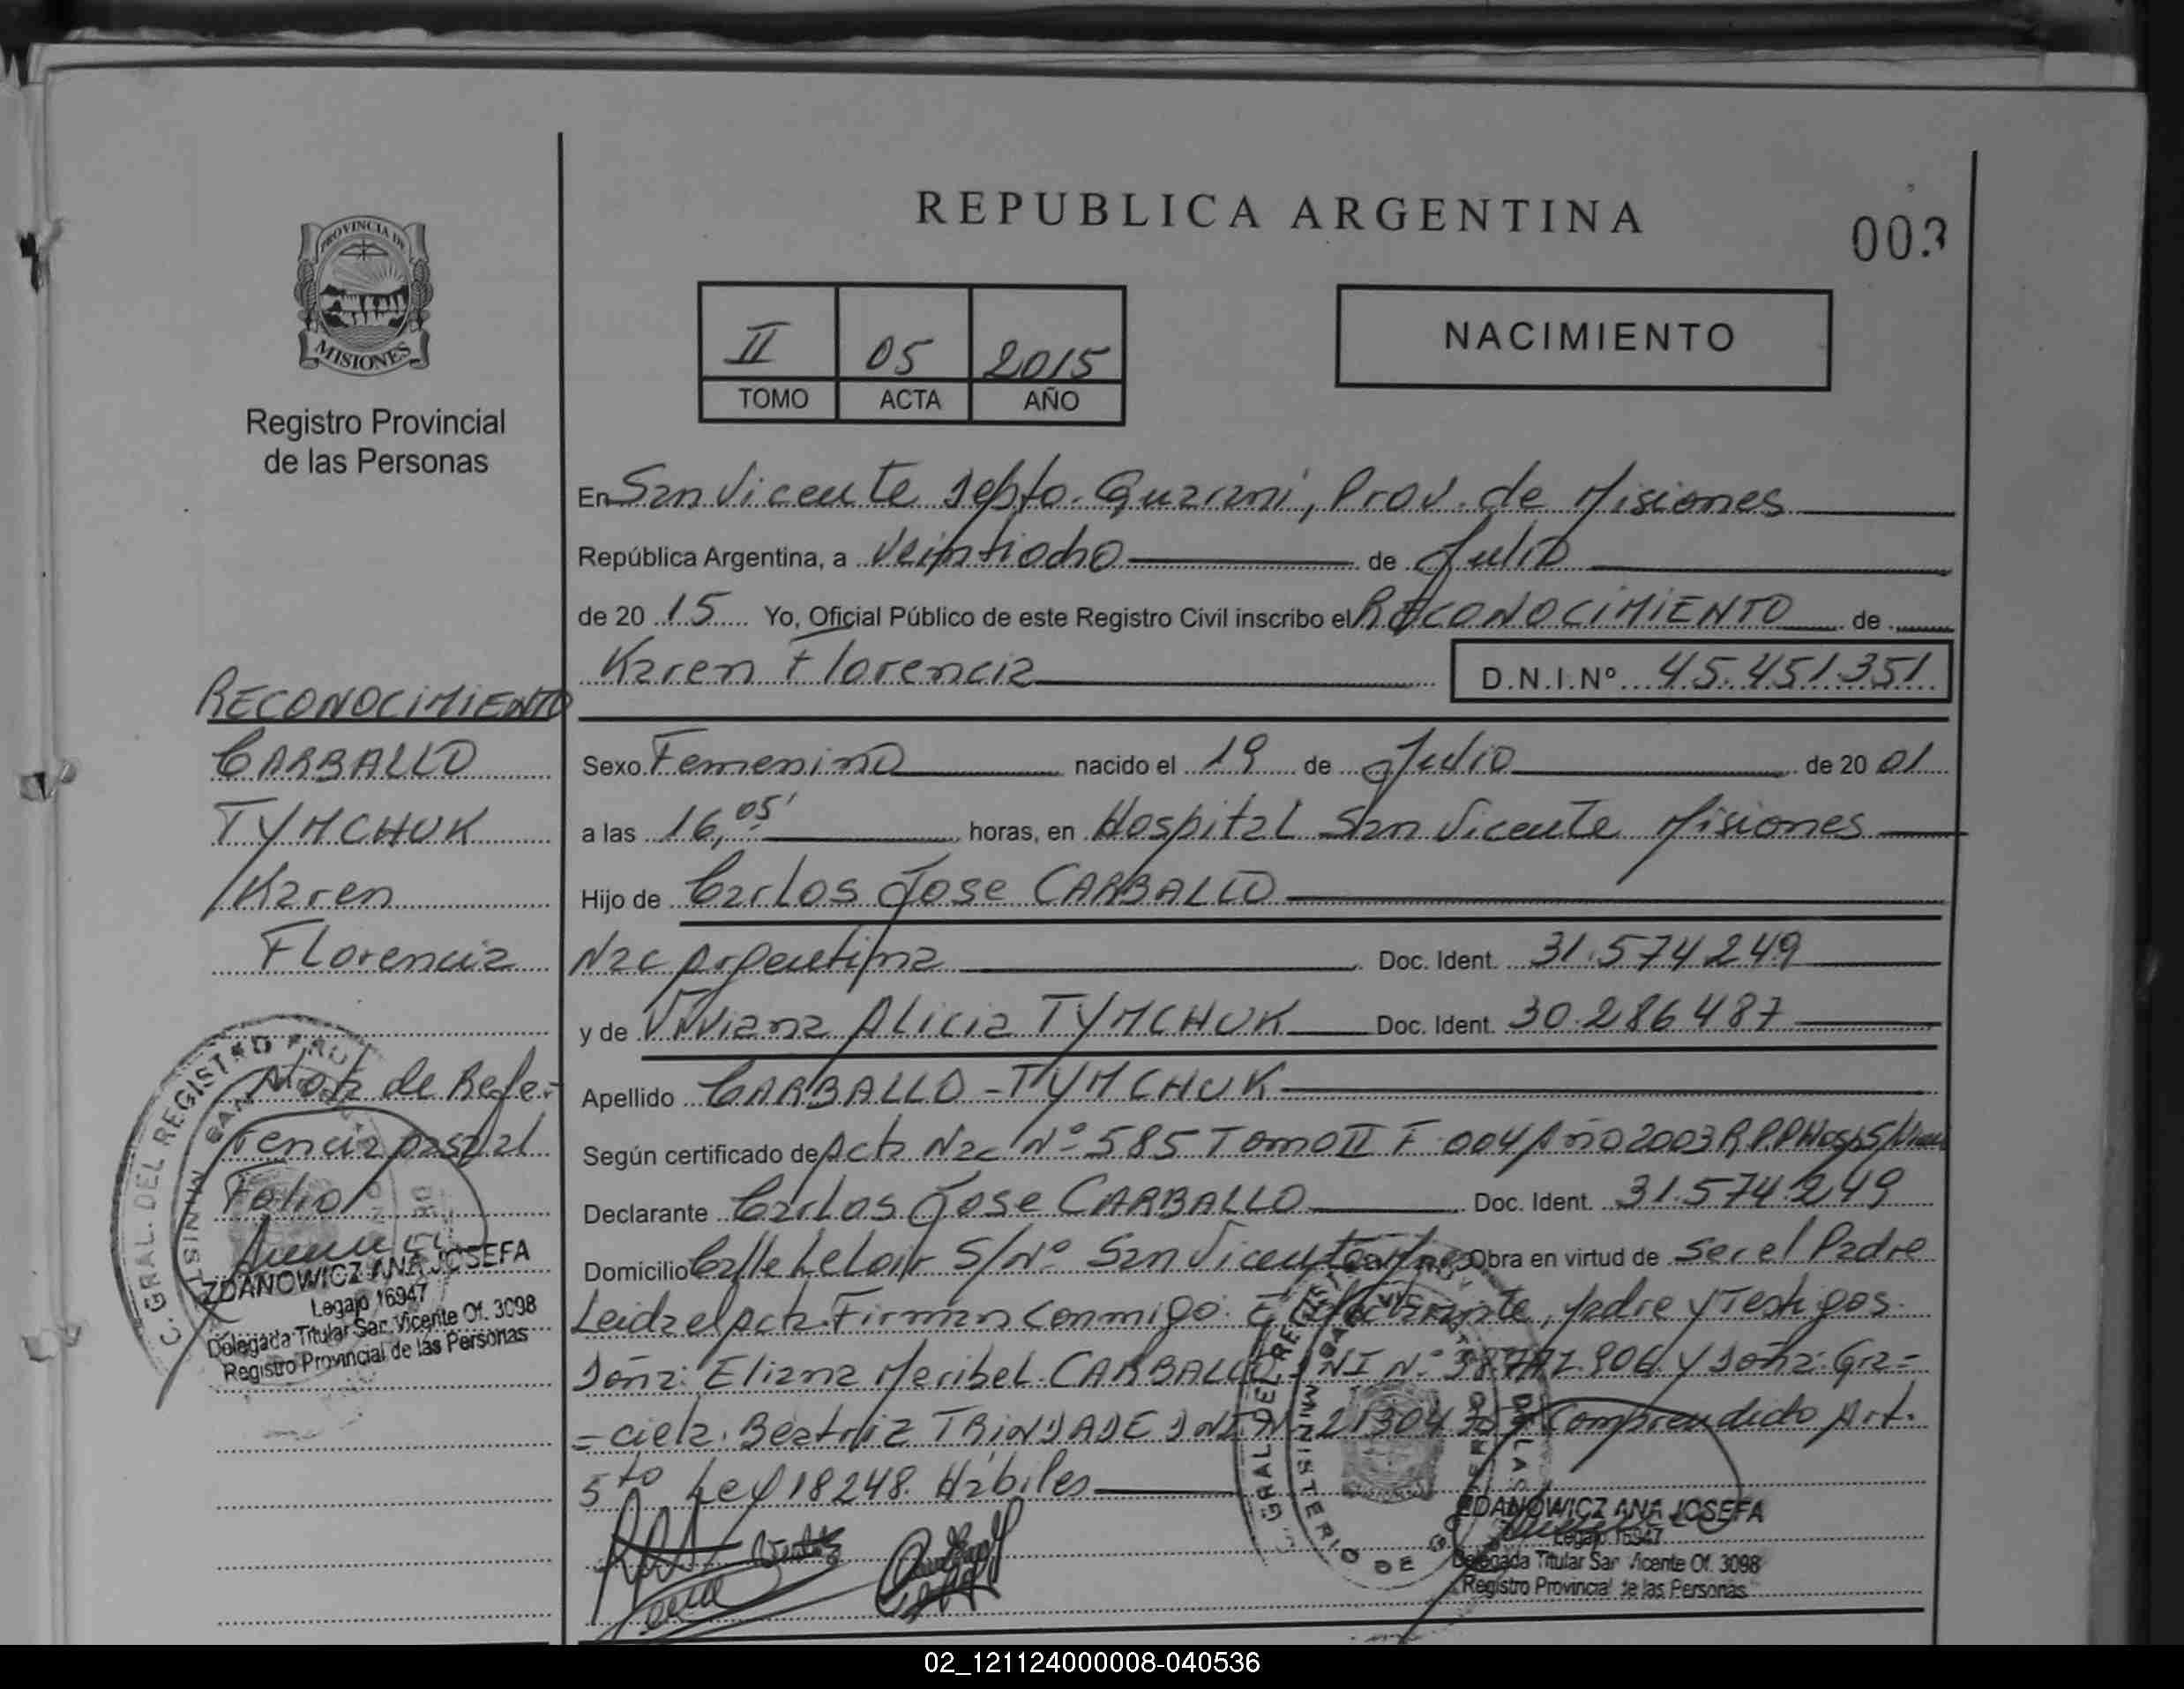 REPUBLICA ARGENTINA
003
PROVINCIA DE
MISIONES
Registro Provincial
de las Personas
II 05 2015
TOMO ACTA AÑO
NACIMIENTO
En San Vicente Depto. Guarani, Prov. de Misiones
República Argentina, a veintiocho de Julio
de 20 15 Yo, Oficial Público de este Registro Civil inscribo el RECONOCIMIENTO de
Karen Florencia D.N.I.Nº 45.451.351
RECONOCIMIENTO
CARBALLO
TYMCHUK
Karen
Florencia
Nota de Refe-
rencia pasa al
Folio
ZDANOWICZ ANA JOSEFA
Legajo 16947
Delegada Titular San Vicente Of. 3098
Registro Provincial de las Personas
Sexo Femenino nacido el 19 de Julio de 20 01
a las 16,05' horas, en Hospital San Vicente Misiones
Hijo de Carlos Jose CARBALLO
Nac Argentina Doc. Ident. 31.574.249
y de Viviana Alicia TYMCHUK Doc. Ident. 30.286.487
Apellido CARBALLO - TYMCHUK
Según certificado de Acta Nac Nº 585 Tomo II F 004 Año 2003 R.P.P Hosp S/Vicen
Declarante Carlos Jose CARBALLO Doc. Ident. 31.574.249
Domicilio Calle Leloir S/Nº San Vicente Obra en virtud de Ser el Padre
Leida el Acta Firman Conmigo: El declarante, Madre y Testigos
Doña: Eliana Meribel CARBALLO DNI Nº y Doña: Gra=
=ciela Beatriz TRINDADE DNI Nº Comprendido Art.
5to Ley 18248. Hábiles
ZDANOWICZ ANA JOSEFA
Legajo 16947
Delegada Titular San Vicente Of. 3098
Registro Provincial de las Personas
02_121124000008-040536